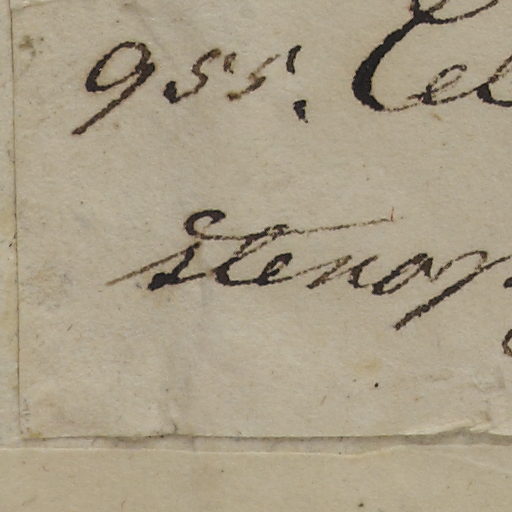 955. Cel
stenop